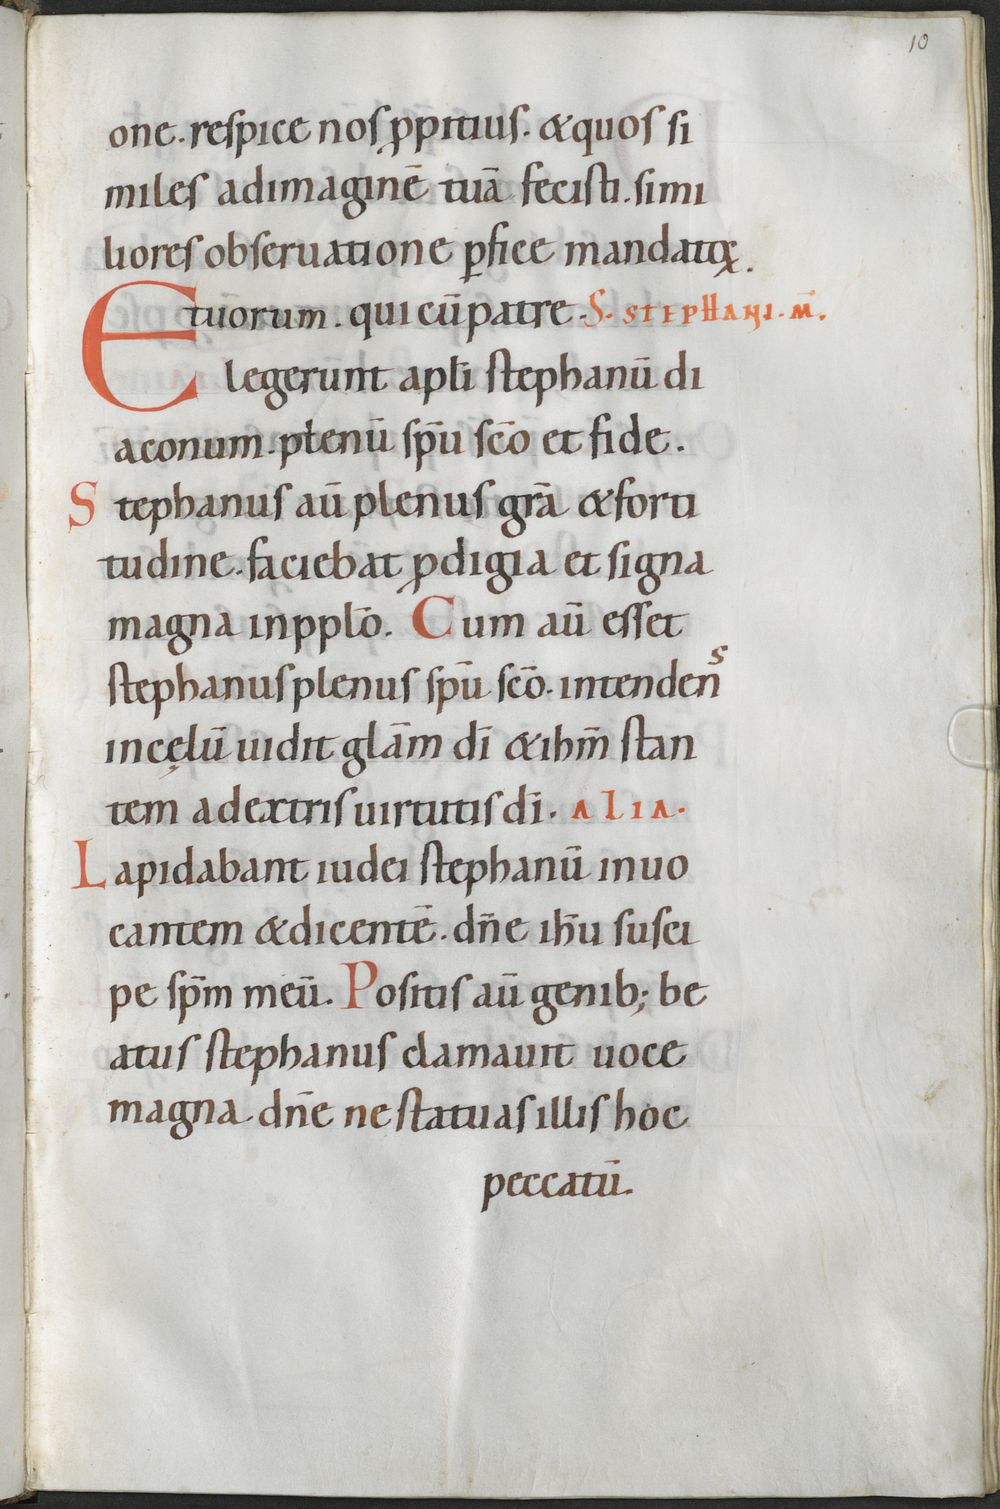 10
one. respice nos ꝓpitius. & quos si
miles ad imaginē tuā fecisti. simi
liores obseruatione ꝑfice mandatoꝝ.
tuorum. qui cū patre. S. STEPHANI. M̄.
Elegerunt apłi stephanū di
aconum. plenū sp̄u sc̄o et fide.
Stephanus aū plenus gr̄a & forti
tudine. faciebat ꝓdigia et signa
magna in pplō. Cum aū esset
stephanus plenus sp̄u sc̄o. intendens
in cęlū uidit glām dī & ihm̄ stan
tem a dextris uirtutis dī. ALIA.
Lapidabant iudei stephanū inuo
cantem & dicentē. dn̄e ihū susci
pe sp̄m meū. Positis aū genib; be
atus stephanus clamauit uoce
magna dn̄e ne statuas illis hoc
peccatū.